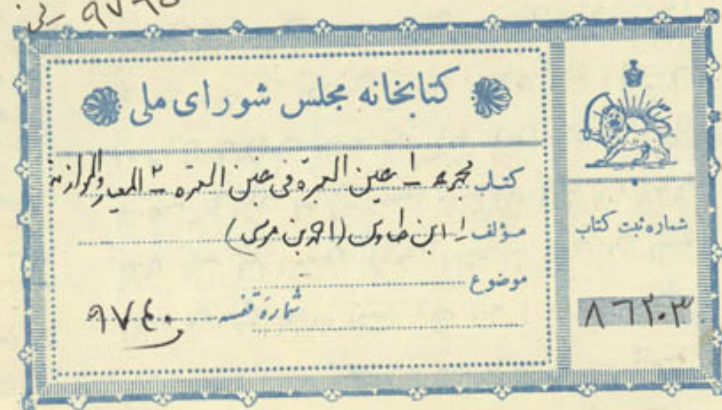 کتابخانه مجلس شورای ملی
کتاب مجموعه ۱ عین العبرة فی غبن العترة ۲ المعیار والموازنة
مؤلف ۱ ابن طاوس (احمد بن موسی)
موضوع
شمارهٔ قفسه ۹۷۴۰
شماره ثبت کتاب
۸۶۲۰۳